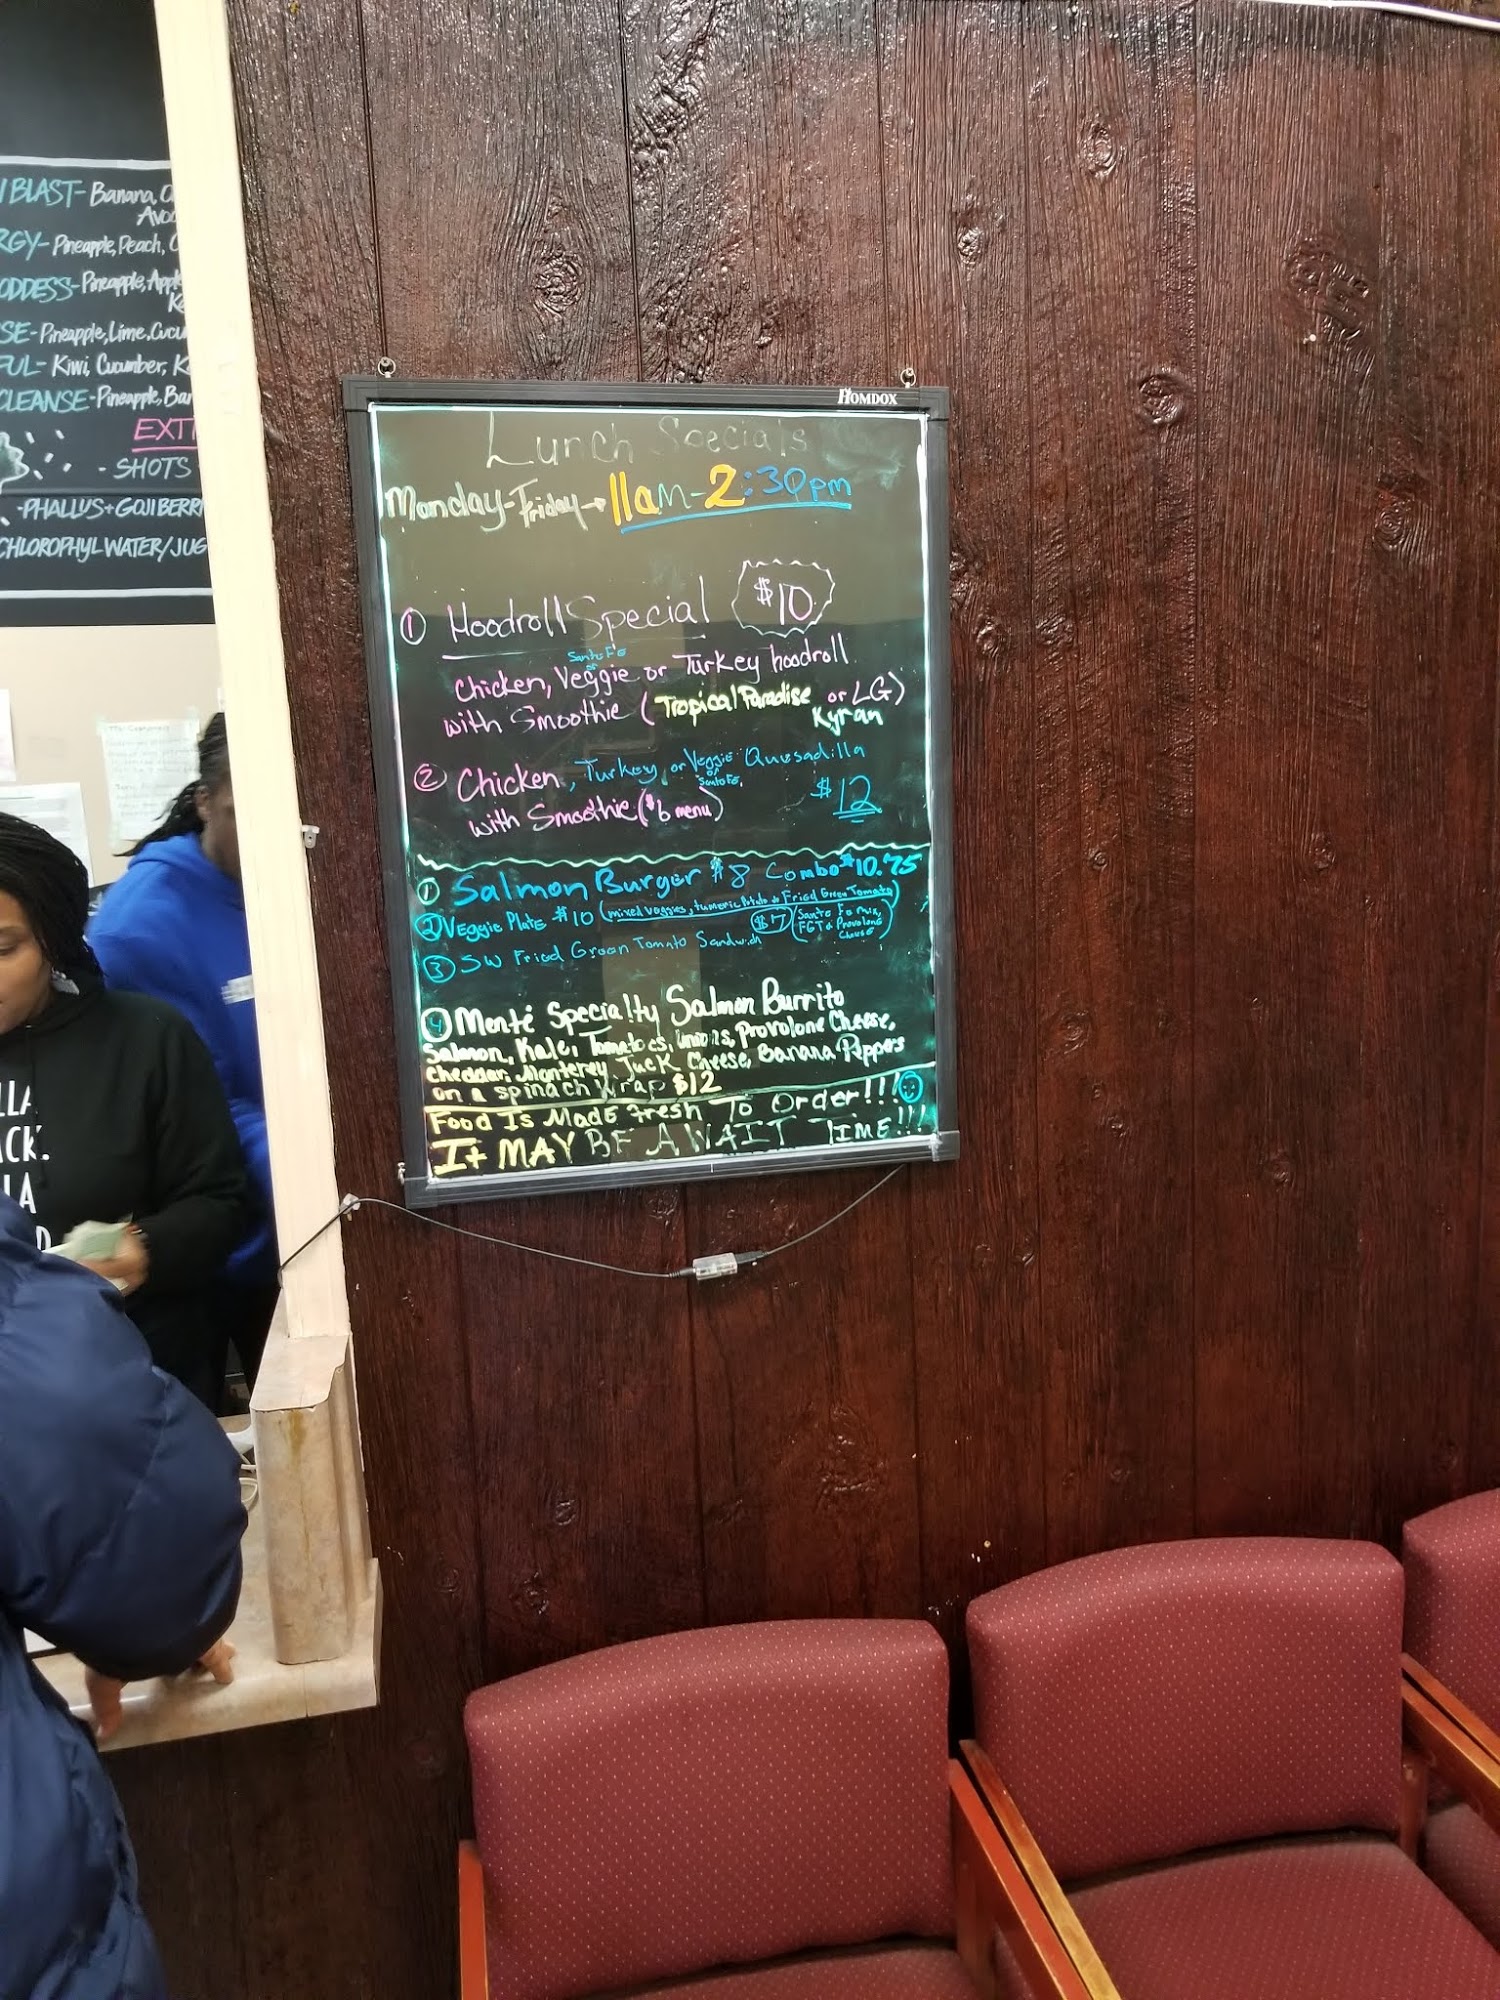 BLAST- Banana,
RGY- Pineapple, Peach,
ODDESS- Pineapple,
SE- Pineapple, Lime,
FUL- Kiwi, Cucumber,
CLEANSE- Pineapple,
- SHOTS
-PHALLUS+
CHLOROPHYL WATER/JUG
HOMDOX
Lunch Specials
Monday-Friday → 11am-2:30pm
① Hoodroll Special $10
Santa Fe
or
Chicken, Veggie or Turkey hoodroll
with Smoothie (Tropical Paradise or LG)
Kyran
② Chicken, Turkey, or Veggie Quesadilla
or
Santa Fe,
with Smoothie ($6 menu) $12
① Salmon Burger $8 Combo $10.75
② Veggie Plate $10 (mixed veggies, tumeric Potato & Fried Green Tomato)
③ SW Fried Green Tomato Sandwich $7 (Santa Fe mix,
FGT & Provolone
Cheese)
④ Menté Specialty Salmon Burrito
Salmon, Kale, Tomatoes, Onions, Provolone Cheese,
Cheddar, Monterey Jack Cheese, Banana Peppers
on a spinach Wrap $12
Food Is Made Fresh To Order!!!
It MAY BE A WAIT TIME!!!